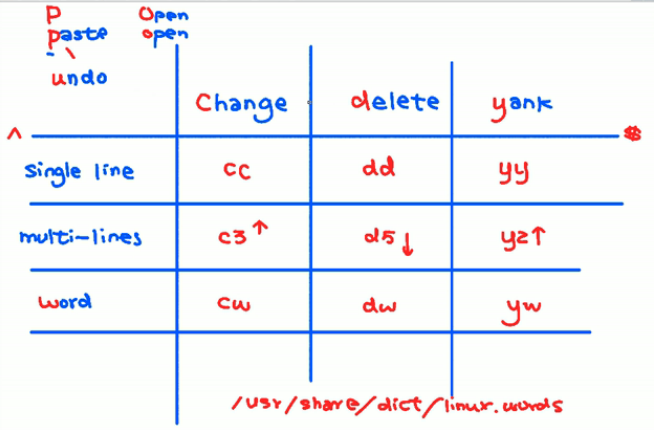 P Open
paste open
undo
Change delete yank
^ $
single line cc dd yy
multi-lines c3↑ d5↓ y2↑
word cw dw yw
/usr/share/dict/linux.words